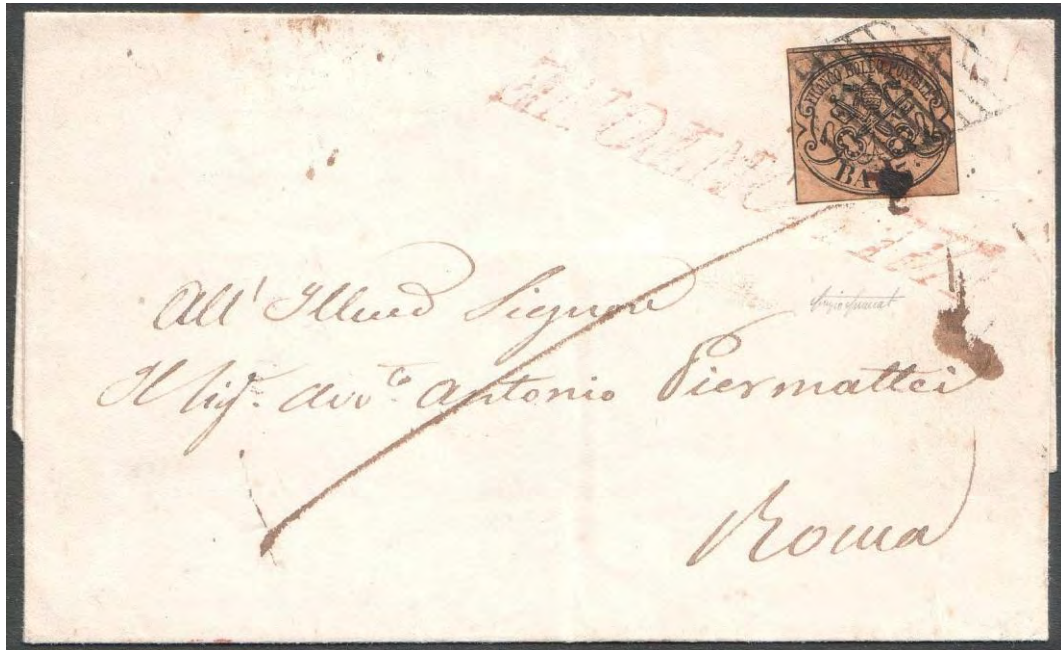 FRANCO BOLLO POSTALE
BAJ.
All' Illmo Signore
Il Sigr. Avv.to Antonio Piermattei
Roma